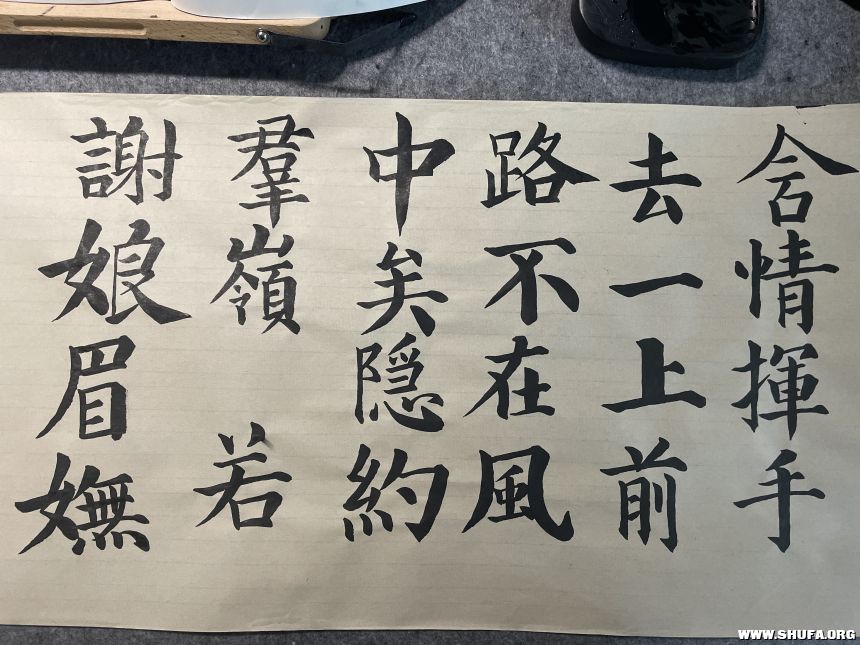 含情揮手
去一上前
路不在風
中矣隠約
羣嶺 若
謝娘眉嫵
WWW.SHUFA.ORG